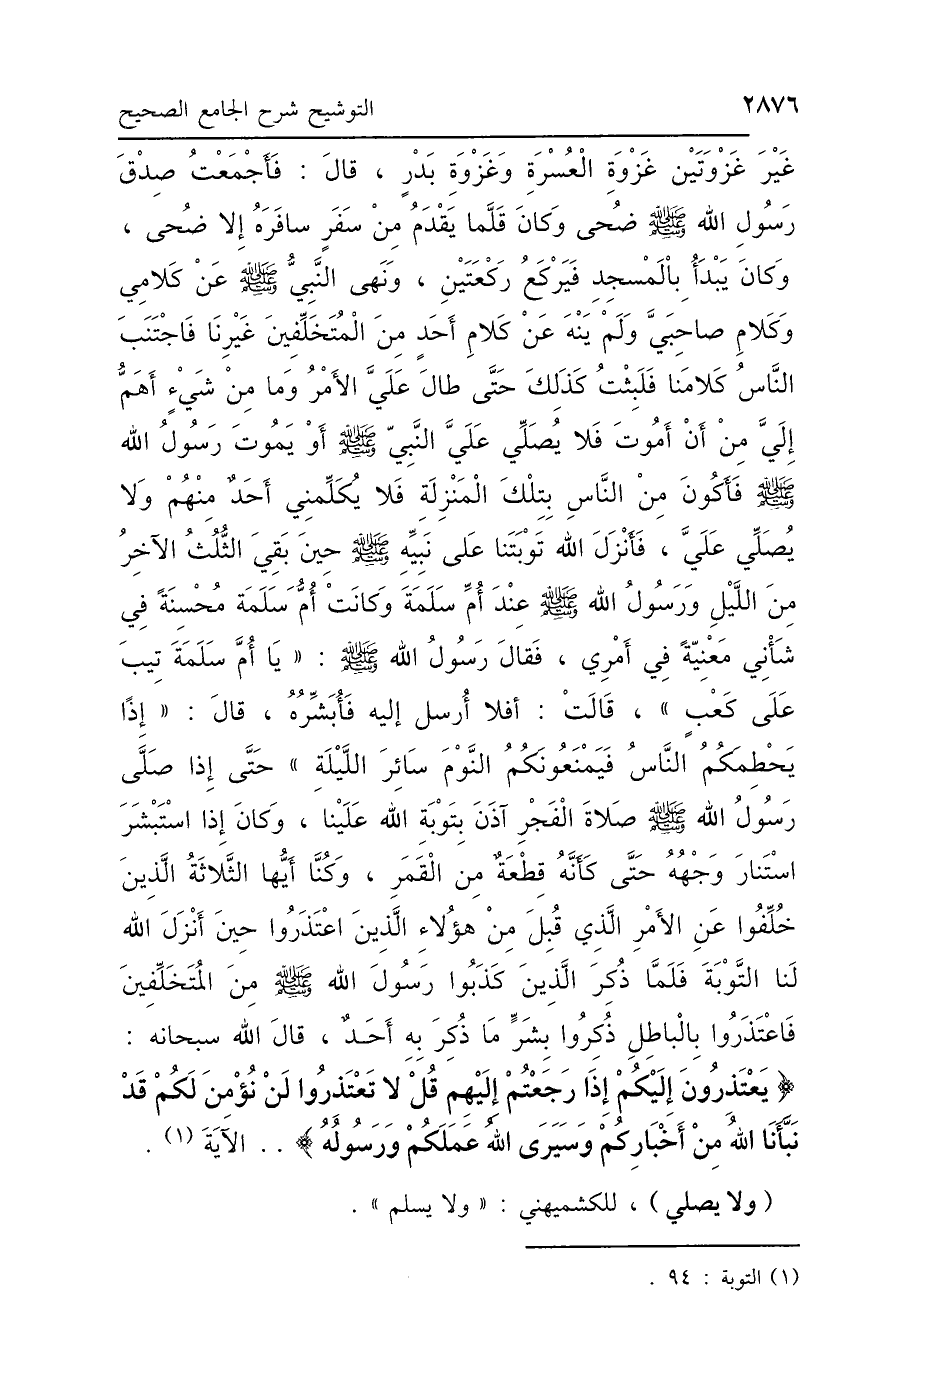 ٢٨٧٦ التوشيح شرح الجامع الصحيح
غَيْرَ غَزْوَتَيْنِ غَزْوَةِ الْعُسْرَةِ وَغَزْوَةِ بَدْرٍ ، قالَ : فَأَجْمَعْتُ صِدْقَ
رَسُولِ الله ﷺ ضُحى وَكَانَ قَلَّما يَقْدَمُ مِنْ سَفَرٍ سافَرَهُ إلا ضُحى ،
وَكانَ يَبْدَأُ بِالْمَسجِدِ فَيَرْكَعُ رَكْعَتَيْنِ ، وَنَهى النَّبِيُّ ﷺ عَنْ كَلامي
وَكَلامِ صاحِبَيَّ وَلَمْ يَنْهَ عَنْ كَلامِ أَحَدٍ مِنَ الْمُتَخَلِّفينَ غَيْرِنَا فَاجْتَنَبَ
النَّاسُ كَلامَنا فَلَبِثْتُ كَذَلِكَ حَتَّى طالَ عَلَيَّ الأَمْرُ وَما مِنْ شَيْءٍ أَهَمُّ
إِلَيَّ مِنْ أَنْ أَمُوتَ فَلا يُصَلِّي عَلَيَّ النَّبِيّ ﷺ أَوْ يَمُوتَ رَسُولُ الله
ﷺ فَأَكُونَ مِنْ النَّاسِ بِتِلْكَ الْمَنْزِلَةِ فَلا يُكَلِّمني أَحَدٌ مِنْهُمْ وَلا
يُصَلِّي عَلَيَّ ، فَأَنْزَلَ الله تَوْبَتَنا عَلى نَبِيِّه ﷺ حِينَ بَقِيَ الثُّلُثُ الآخِرُ
مِنَ اللَّيْلِ وَرَسُولُ الله ﷺ عِنْدَ أُمِّ سَلَمَةَ وَكانَتْ أُمُّ سَلَمَة مُحْسِنَةً فِي
شَأْنِي مَعْنِيَّةً فِي أَمْرِي ، فَقالَ رَسُولُ الله ﷺ : « يَا أُمَّ سَلَمَةَ تِيبَ
عَلَى كَعْبٍ » ، قَالَتْ : أفلا أُرسل إليه فَأُبَشِّرُهُ ، قالَ : « إذًا
يَحْطِمَكُمُ النَّاسُ فَيَمْنَعُونَكُمُ النَّوْمَ سائِرَ اللَّيْلَةِ » حَتَّى إذا صَلَّى
رَسُولُ الله ﷺ صَلاةَ الْفَجْرِ آذَنَ بِتَوْبَةِ الله عَلَيْنا ، وَكانَ إذا اسْتَبْشَرَ
اسْتَنارَ وَجْهُهُ حَتَّى كَأَنَّهُ قِطْعَةٌ مِن الْقَمَرِ ، وَكُنَّا أَيُّها الثَّلاثَةُ الَّذِينَ
خُلِّفُوا عَنِ الأَمْرِ الَّذِي قُبِلَ مِنْ هؤُلاءِ الَّذِينَ اعْتَذَرُوا حينَ أَنْزَلَ الله
لَنا التَّوْبَةَ فَلَمَّا ذُكِرَ الَّذِينَ كَذَبُوا رَسُولَ الله ﷺ مِنَ المُتَخَلِّفِينَ
فَاعْتَذَرُوا بِالْباطِلِ ذُكِرُوا بِشَرٍّ مَا ذُكِرَ بِهِ أَحَدٌ ، قالَ الله سبحانه :
﴿ يَعْتَذِرُونَ إِلَيْكُمْ إِذَا رَجَعْتُمْ إِلَيْهِم قُلْ لا تَعْتَذِرُوا لَنْ نُؤْمِنَ لَكُمْ قَدْ
نَبَّأَنَا اللهُ مِنْ أَخْبَارِكُمْ وَسَيَرَى اللهُ عَمَلَكُمْ وَرَسُولُهُ ﴾ . . الآيَةَ (١) .
( ولا يصلي ) ، للكشميهني : « ولا يسلم » .
(١) التوبة : ٩٤ .